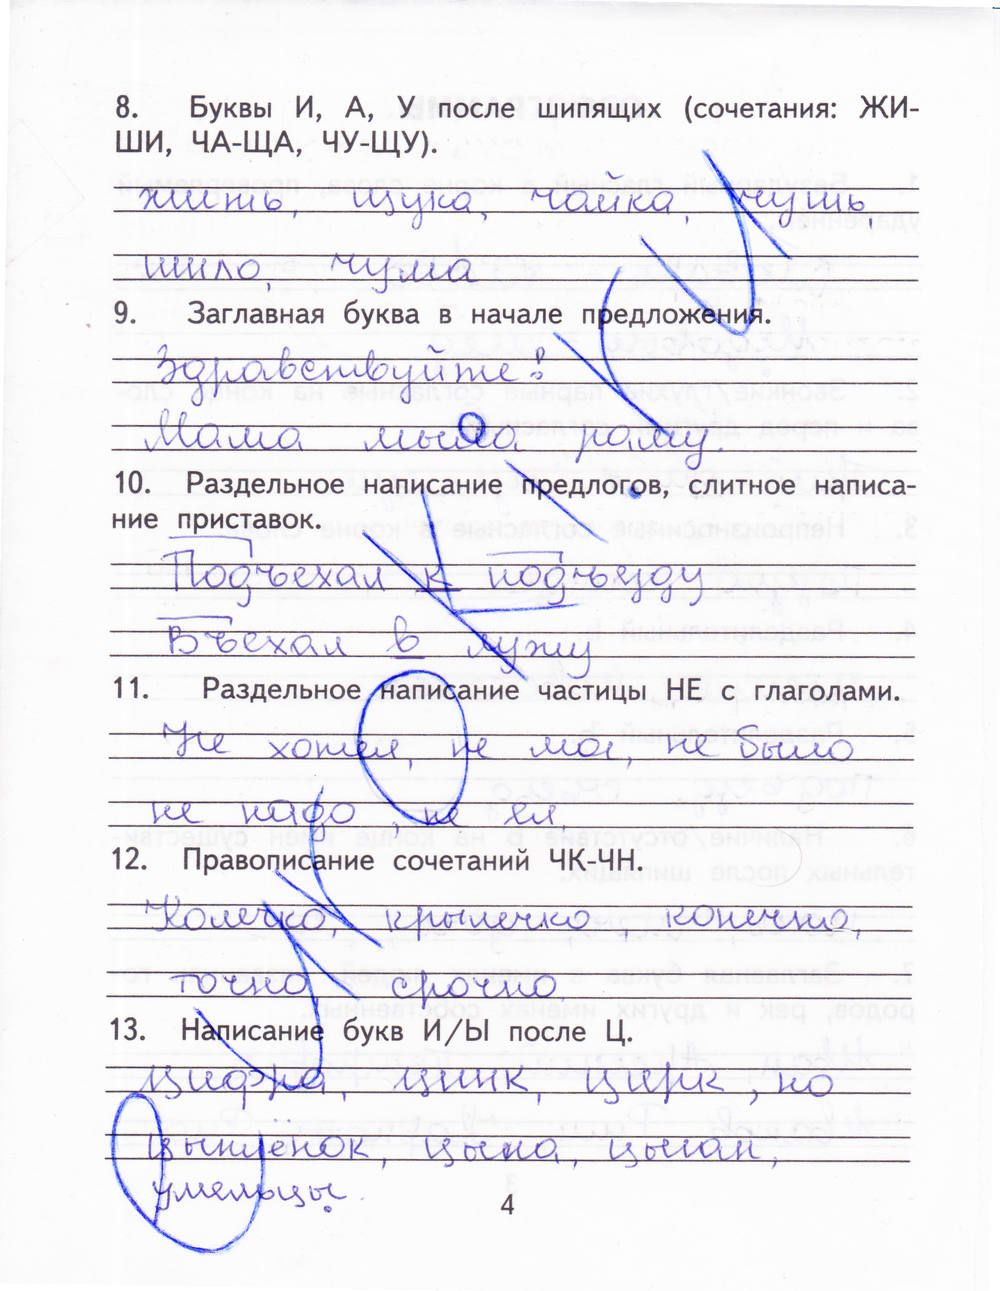 8. Буквы И, А, У после шипящих (сочетания: ЖИ-
ШИ, ЧА-ЩА, ЧУ-ЩУ).
жить, щука, чайка, чушь,
шило, чума
9. Заглавная буква в начале предложения.
Здравствуйте!
Мама мыла раму.
10. Раздельное написание предлогов, слитное написа-
ние приставок.
Подъехал к подъезду
Въехал в лужу
11. Раздельное написание частицы НЕ с глаголами.
Не хотел, не мог, не было
не надо, не ел.
12. Правописание сочетаний ЧК-ЧН.
Колечко, крылечко, конечно,
точно, срочно
13. Написание букв И/Ы после Ц.
цифра, цинк, цирк, но
цыплёнок, цына, цыган,
умельцы.
4